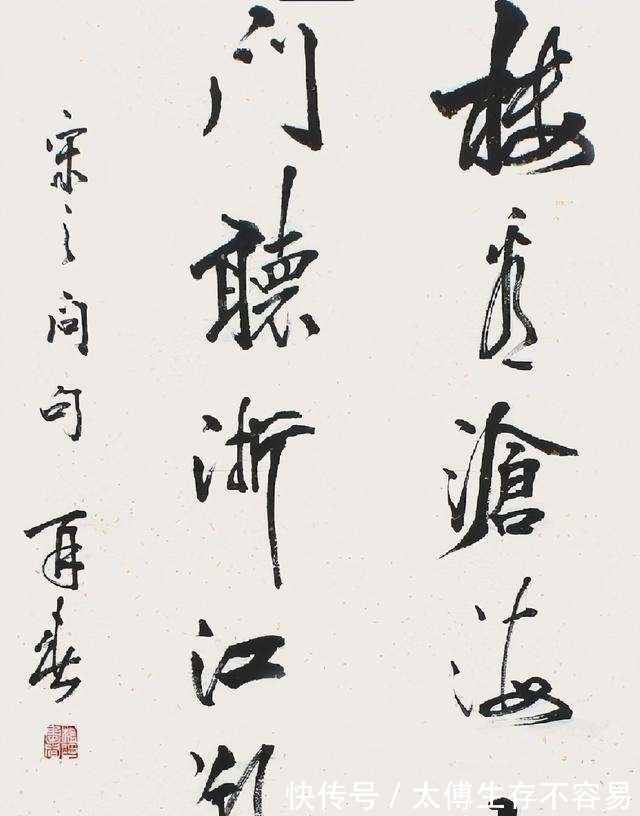 楼看滄海
门聽浙江潮
宋之问句 春
快传号 / 太傅生存不容易